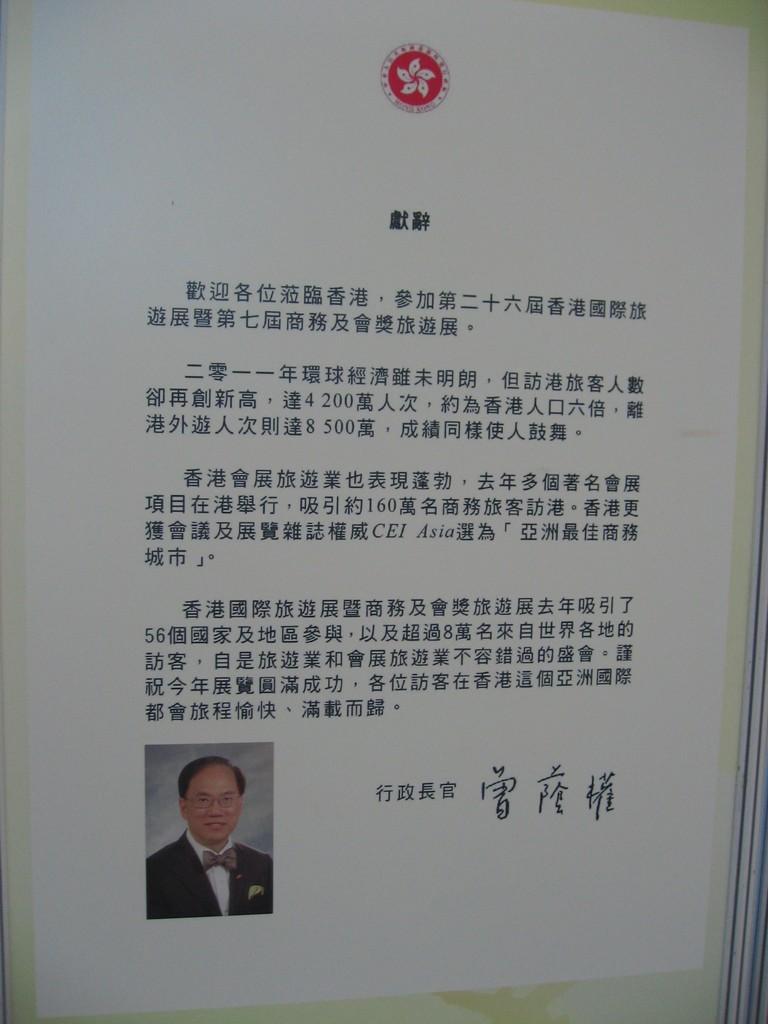 HONG KONG
獻辭
歡迎各位蒞臨香港，參加第二十六屆香港國際旅
遊展暨第七屆商務及會獎旅遊展。
二零一一年環球經濟雖未明朗，但訪港旅客人數
卻再創新高，達4 200萬人次，約為香港人口六倍，離
港外遊人次則達8 500萬，成績同樣使人鼓舞。
香港會展旅遊業也表現蓬勃，去年多個著名會展
項目在港舉行，吸引約160萬名商務旅客訪港。香港更
獲會議及展覽雜誌權威CEI Asia選為「亞洲最佳商務
城市」。
香港國際旅遊展暨商務及會獎旅遊展去年吸引了
56個國家及地區參與，以及超過8萬名來自世界各地的
訪客，自是旅遊業和會展旅遊業不容錯過的盛會。謹
祝今年展覽圓滿成功，各位訪客在香港這個亞洲國際
都會旅程愉快、滿載而歸。
行政長官 曾蔭權